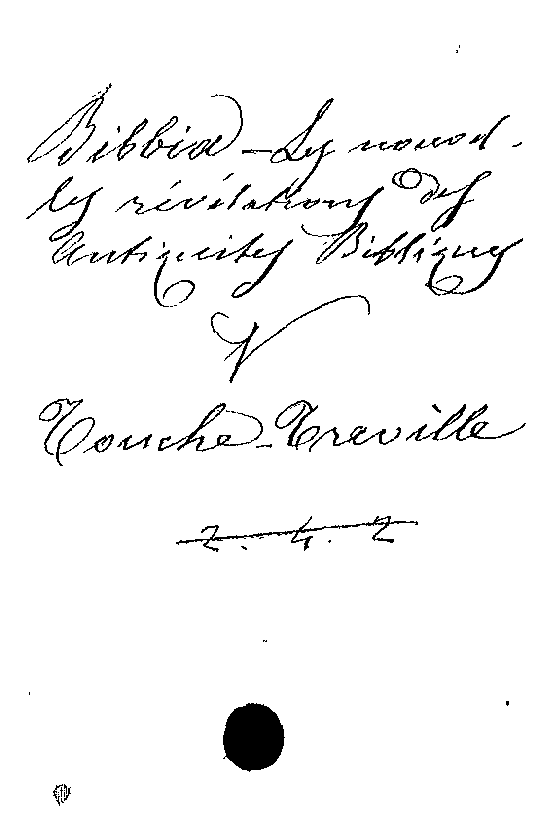 Bibbia - Les nouvel-
les révélations des
Antiquités Bibliques
V
Touche-Treville
2. 4. 2